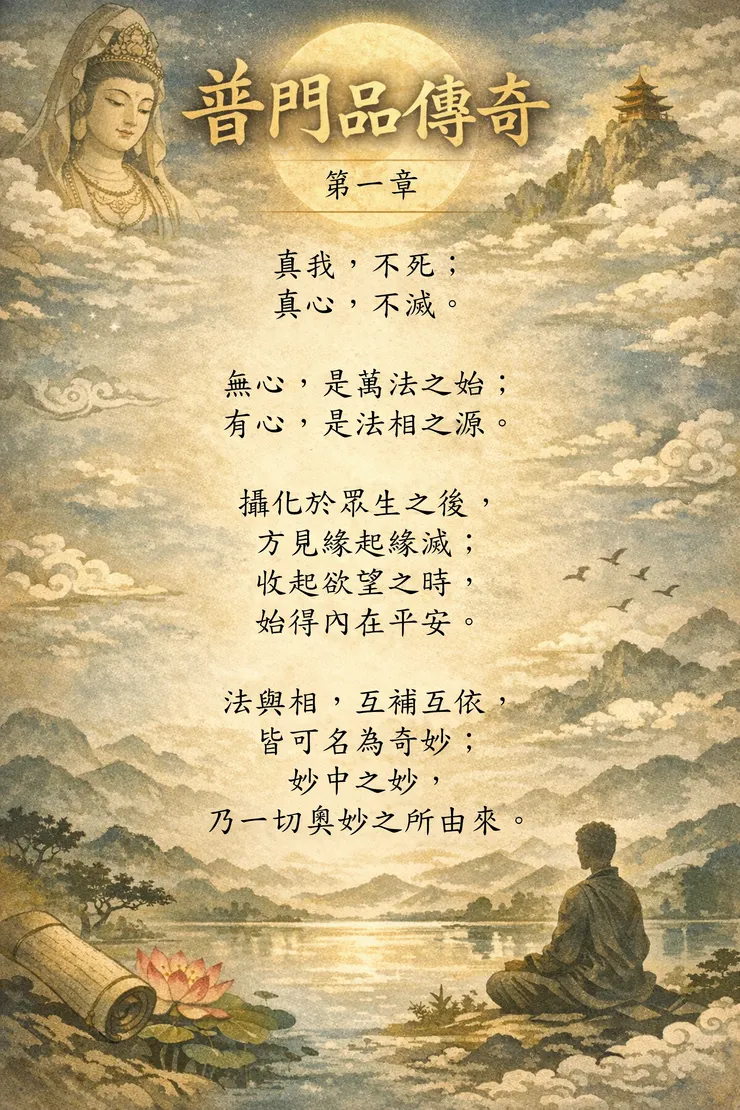 普門品傳奇
第一章
真我，不死；
真心，不滅。
無心，是萬法之始；
有心，是法相之源。
攝化於眾生之後，
方見緣起緣滅；
收起欲望之時，
始得內在平安。
法與相，互補互依，
皆可名為奇妙；
妙中之妙，
乃一切奧妙之所由來。